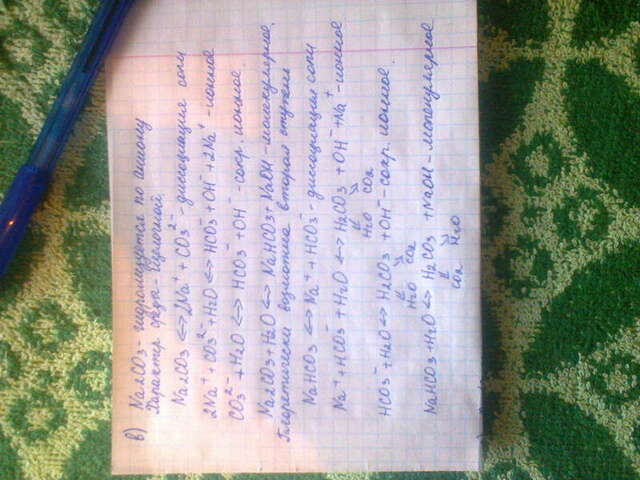 в) Na2CO3 - гидролизуется по аниону
Характер среды - щелочной.
Na2CO3 <=> 2Na⁺ + CO3²⁻ - диссоциация соли
2Na⁺ + CO3²⁻ + H2O <=> HCO3⁻ + OH⁻ + 2Na⁺ - ионное
CO3²⁻ + H2O <=> HCO3⁻ + OH⁻ - сокр. ионное.
Na2CO3 + H2O <=> NaHCO3 + NaOH - молекулярное.
Теоретически возможна вторая ступень
NaHCO3 <=> Na⁺ + HCO3⁻ - диссоциация соли
Na⁺ + HCO3⁻ + H2O <=> H2CO3 + OH⁻ + Na⁺ - ионное
H2O CO2
HCO3⁻ + H2O <=> H2CO3 + OH⁻ - сокр. ионное.
H2O CO2
NaHCO3 + H2O <=> H2CO3 + NaOH - молекулярное
CO2 H2O